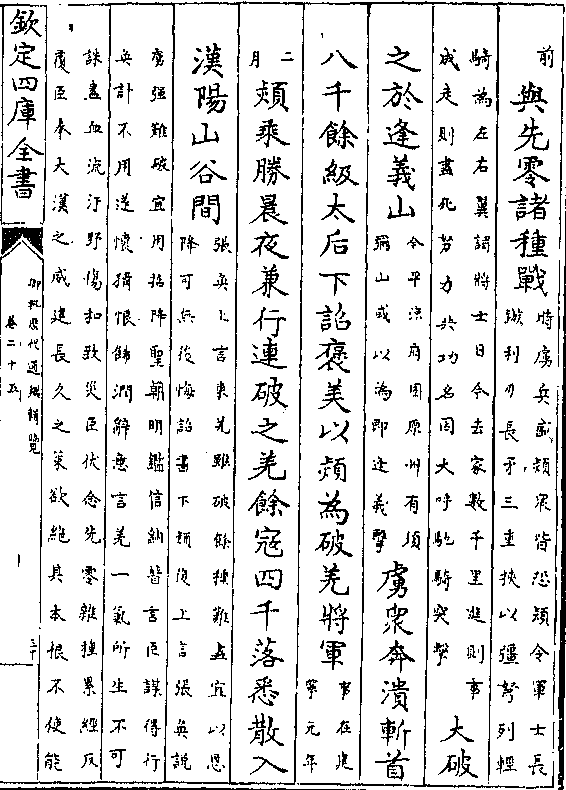 前 與先零諸種戰
時虜兵盛熲衆皆恐熲令軍士長
鏃利刀長矛三重挾以彊弩列輕
騎為左右翼謂將士曰今去家數千里進則事
成走則盡死努力共功名因大呼馳騎突擊
大破
之於逢義山
今平涼府固原州有須
彌山或以為即逢義
虜衆奔潰斬首
八千餘級太后下詔褒美以熲為破羌將軍
事在建
寧元年
二月
熲乘勝晨夜兼行連破之羌餘寇四千落悉散入
漢陽山谷間
張奐上言東羌雖破餘種難盡宜以恩
降可無後悔詔書下熲復上言張奐說
虜强難破宜用招降聖朝明鑑信納瞽言臣謀得行
奐計不用遂懷猜恨飾潤辭意言羌一氣所生不可
誅盡血流汙野傷和致災臣伏念先零雜種累經反
覆臣奉大漢之威建長久之策欲絶其本根不使能
欽定四庫全書
御批歷代通鑑輯覽
卷二十五